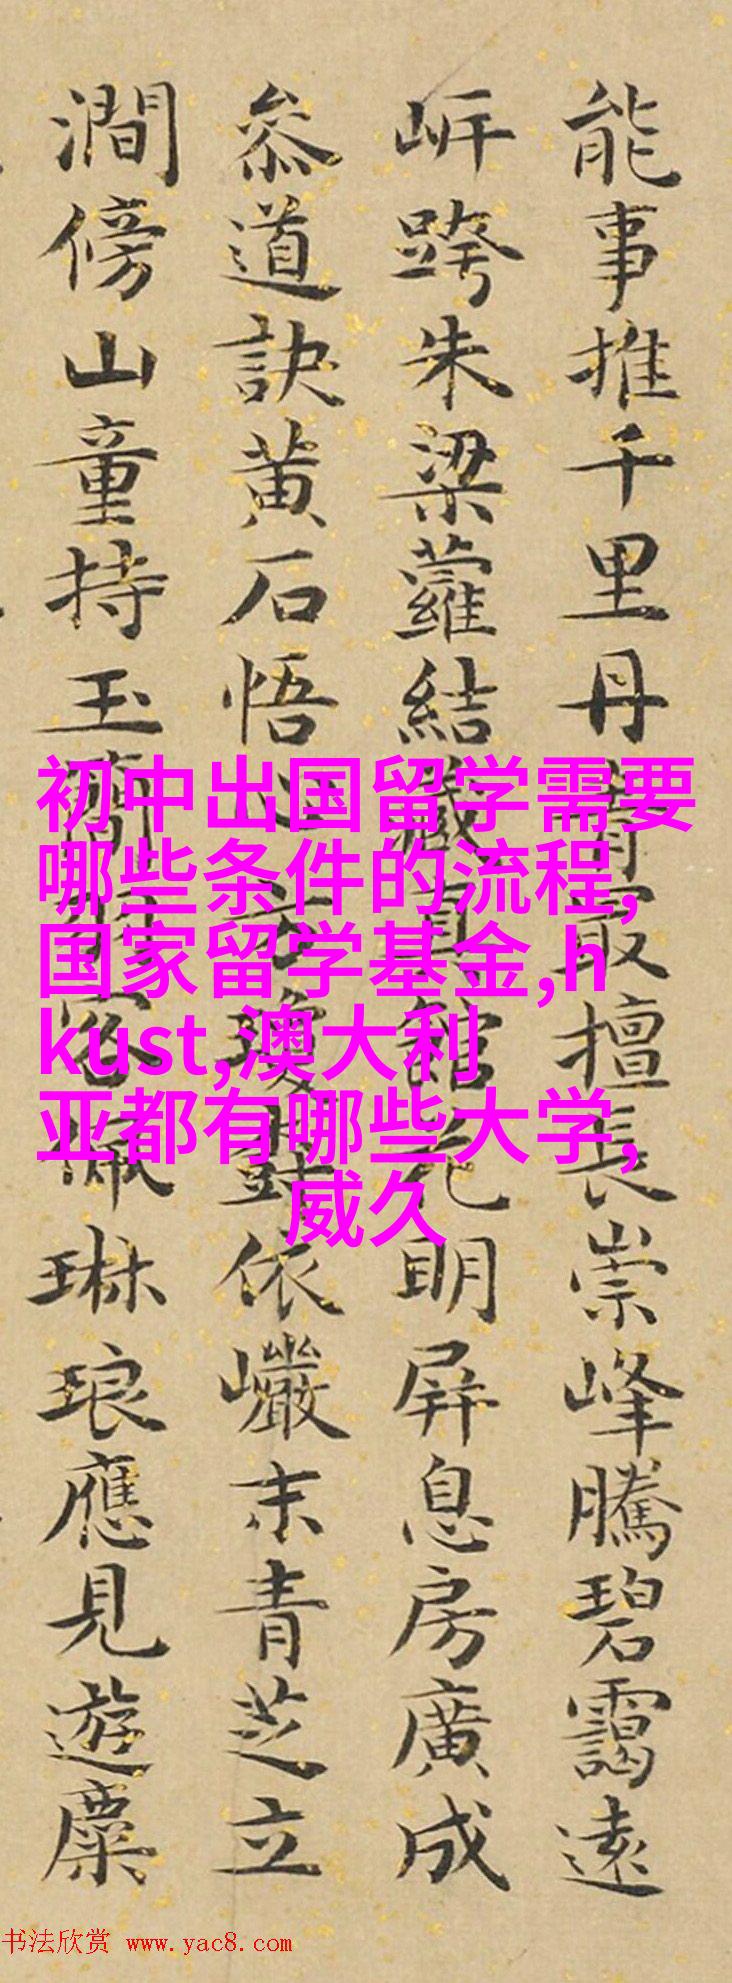 能事推千里丹青最擅長崇峰騰碧靄遠
岍跨朱梁蘿結藏真館花明屏息房廣成
叅道訣黄石悟依巗末青芝立
澗傍山童持玉客佩琳琅應見遊麋
初中出国留学需要
哪些条件的流程,
国家留学基金,h
kust,澳大利
亚都有哪些大学,
威久
书法欣赏 www.yac8.com